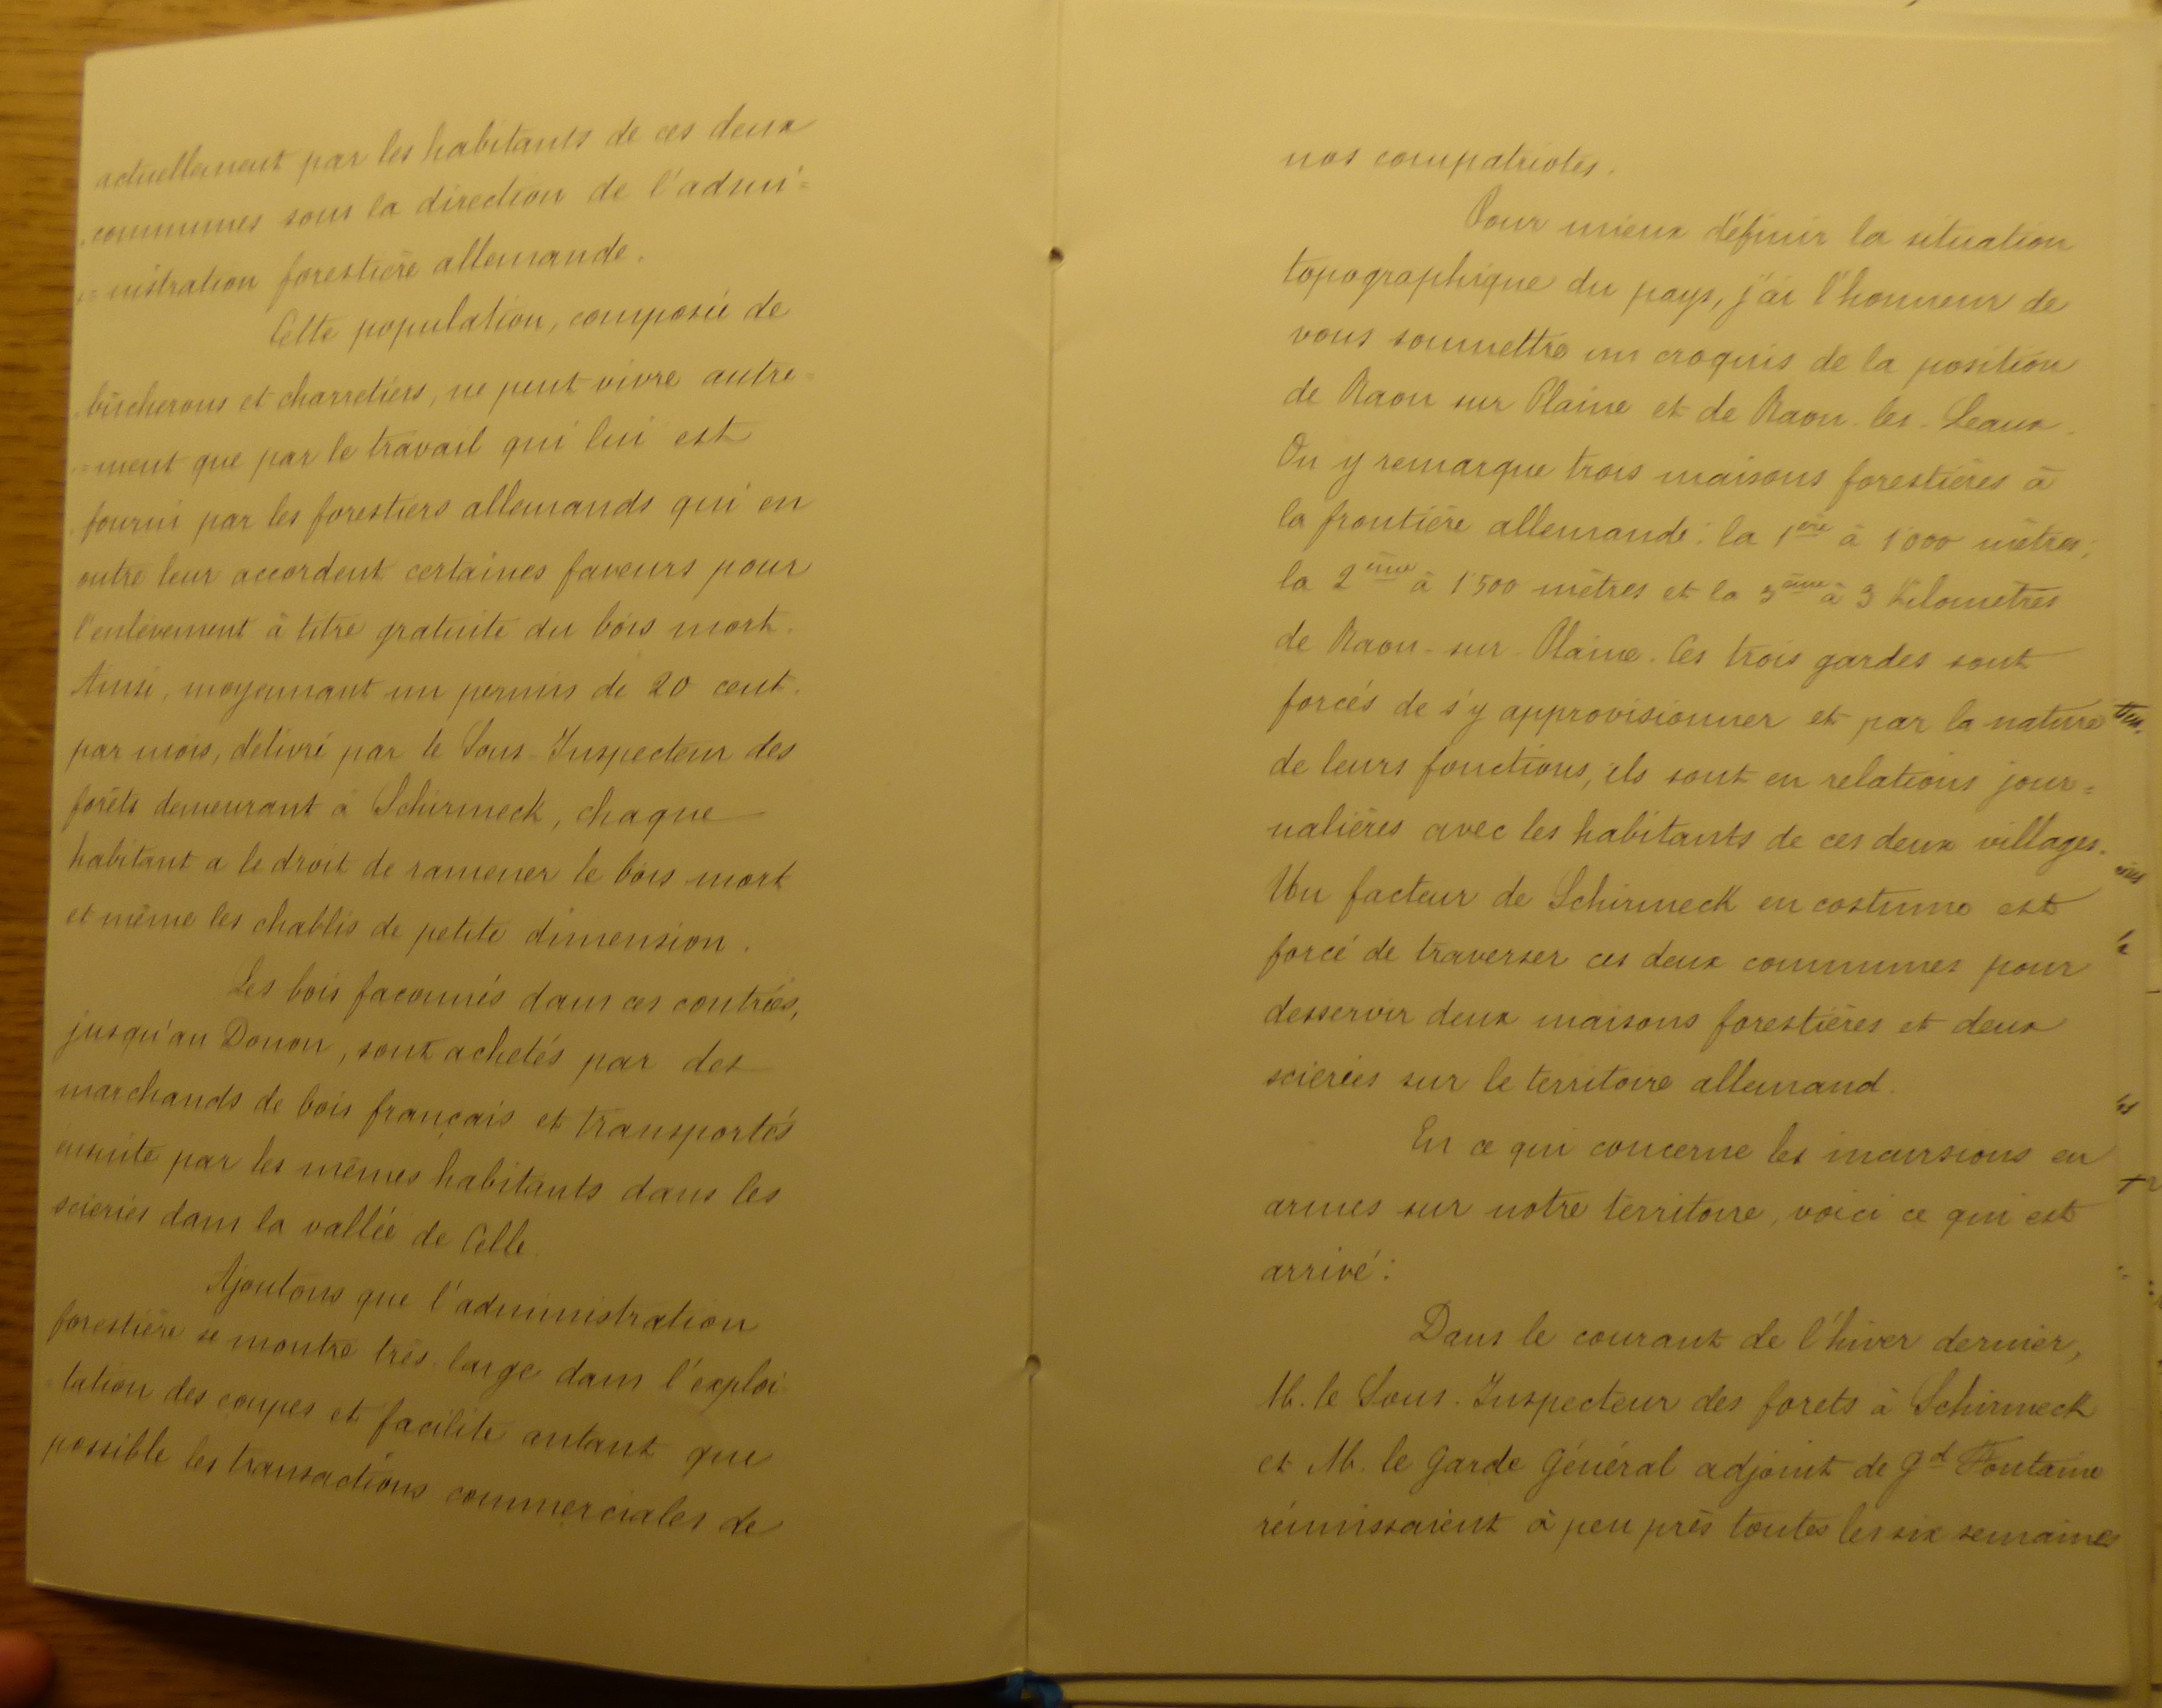 actuellement par les habitants de ces deux
communes sous la direction de l'admi=
=nistration forestière allemande.
Cette population, composée de
bûcherons et charretiers, ne peut vivre autre=
=ment que par le travail qui lui est
fourni par les forestiers allemands qui en
outre leur accordent certaines faveurs pour
l'enlèvement à titre gratuite du bois mort.
Ainsi, moyennant un permis de 20 cent.
par mois, délivré par le Sous-Inspecteur des
forêts demeurant à Schirmeck, chaque
habitant a le droit de ramener le bois mort
et même les chablis de petite dimension.
Les bois façonnés dans ces contrées,
jusqu'au Donon, sont achetés par des
marchands de bois français et transportés
ensuite par les mêmes habitants dans les
scieries dans la vallée de Celle
Ajoutons que l'administration
forestière se montre très large dans l'exploi
=tation des coupes et facilite autant que
possible les transactions commerciales de
nos compatriotes.
Pour mieux définir la situation
topographique du pays, j'ai l'honneur de
vous soumettre un croquis de la position
de Raon sur Plaine et de Raon-les-Leaux.
On y remarque trois maisons forestières à
la frontière allemande: la 1ère à 1000 mètres;
la 2ème à 1500 mètres et la 3ème à 3 kilomètres
de Raon-sur-Plaine. Ces trois gardes sont
forcés de s'y approvisionner et par la nature
de leurs fonctions, ils sont en relations jour=
nalières avec les habitants de ces deux villages.
Un facteur de Schirmeck en costume est
forcé de traverser ces deux communes pour
desservir deux maisons forestières et deux
scieries sur le territoire allemand.
En ce qui concerne les incursions en
armes sur notre territoire, voici ce qui est
arrivé:
Dans le courant de l'hiver dernier,
M. le Sous-Inspecteur des forets à Schirmeck
et M. le Garde Général adjoint de Gd Fontaine
réunissaient à peu près toutes les six semaines